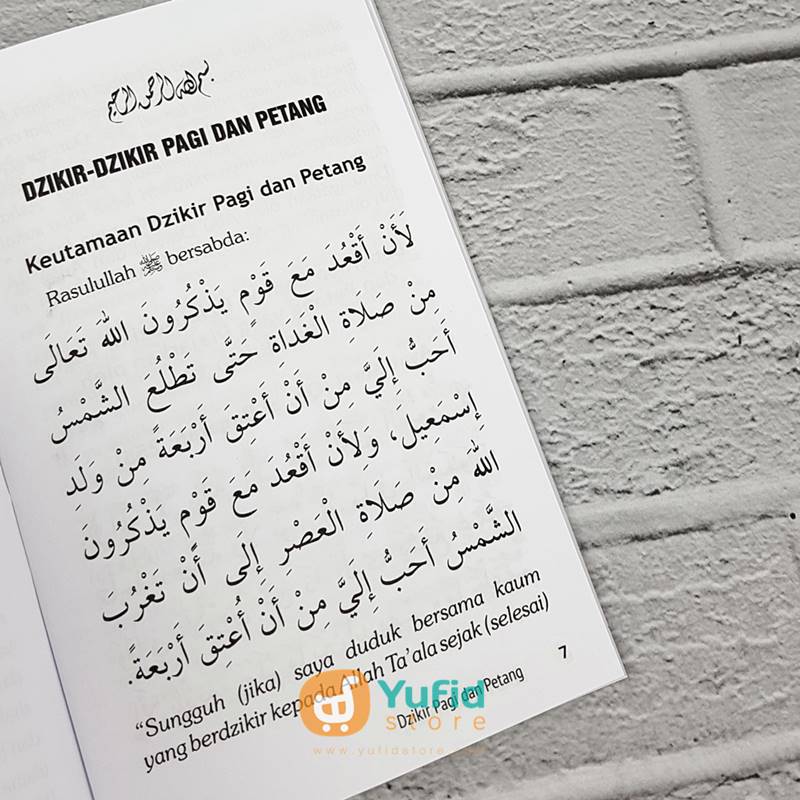 بسم الله الرحمن الرحيم
DZIKIR-DZIKIR PAGI DAN PETANG
Keutamaan Dzikir Pagi dan Petang
Rasulullah ﷺ bersabda:
لَأَنْ أَقْعُدَ مَعَ قَوْمٍ يَذْكُرُونَ اللهَ تَعَالَى
مِنْ صَلَاةِ الْغَدَاةِ حَتَّى تَطْلُعَ الشَّمْسُ
أَحَبُّ إِلَيَّ مِنْ أَنْ أَعْتِقَ أَرْبَعَةً مِنْ وَلَدِ
إِسْمَعِيلَ، وَلِأَنْ أَقْعُدَ مَعَ قَوْمٍ يَذْكُرُونَ
اللهَ مِنْ صَلَاةِ الْعَصْرِ إِلَى أَنْ تَغْرُبَ
الشَّمْسُ أَحَبُّ إِلَيَّ مِنْ أَنْ أُعْتِقَ أَرْبَعَةً.
“Sungguh (jika) saya duduk bersama kaum
yang berdzikir kepada Allah Ta’ala sejak (selesai)
Dzikir Pagi dan Petang
7
Yufid
store
www.yufidstore.com